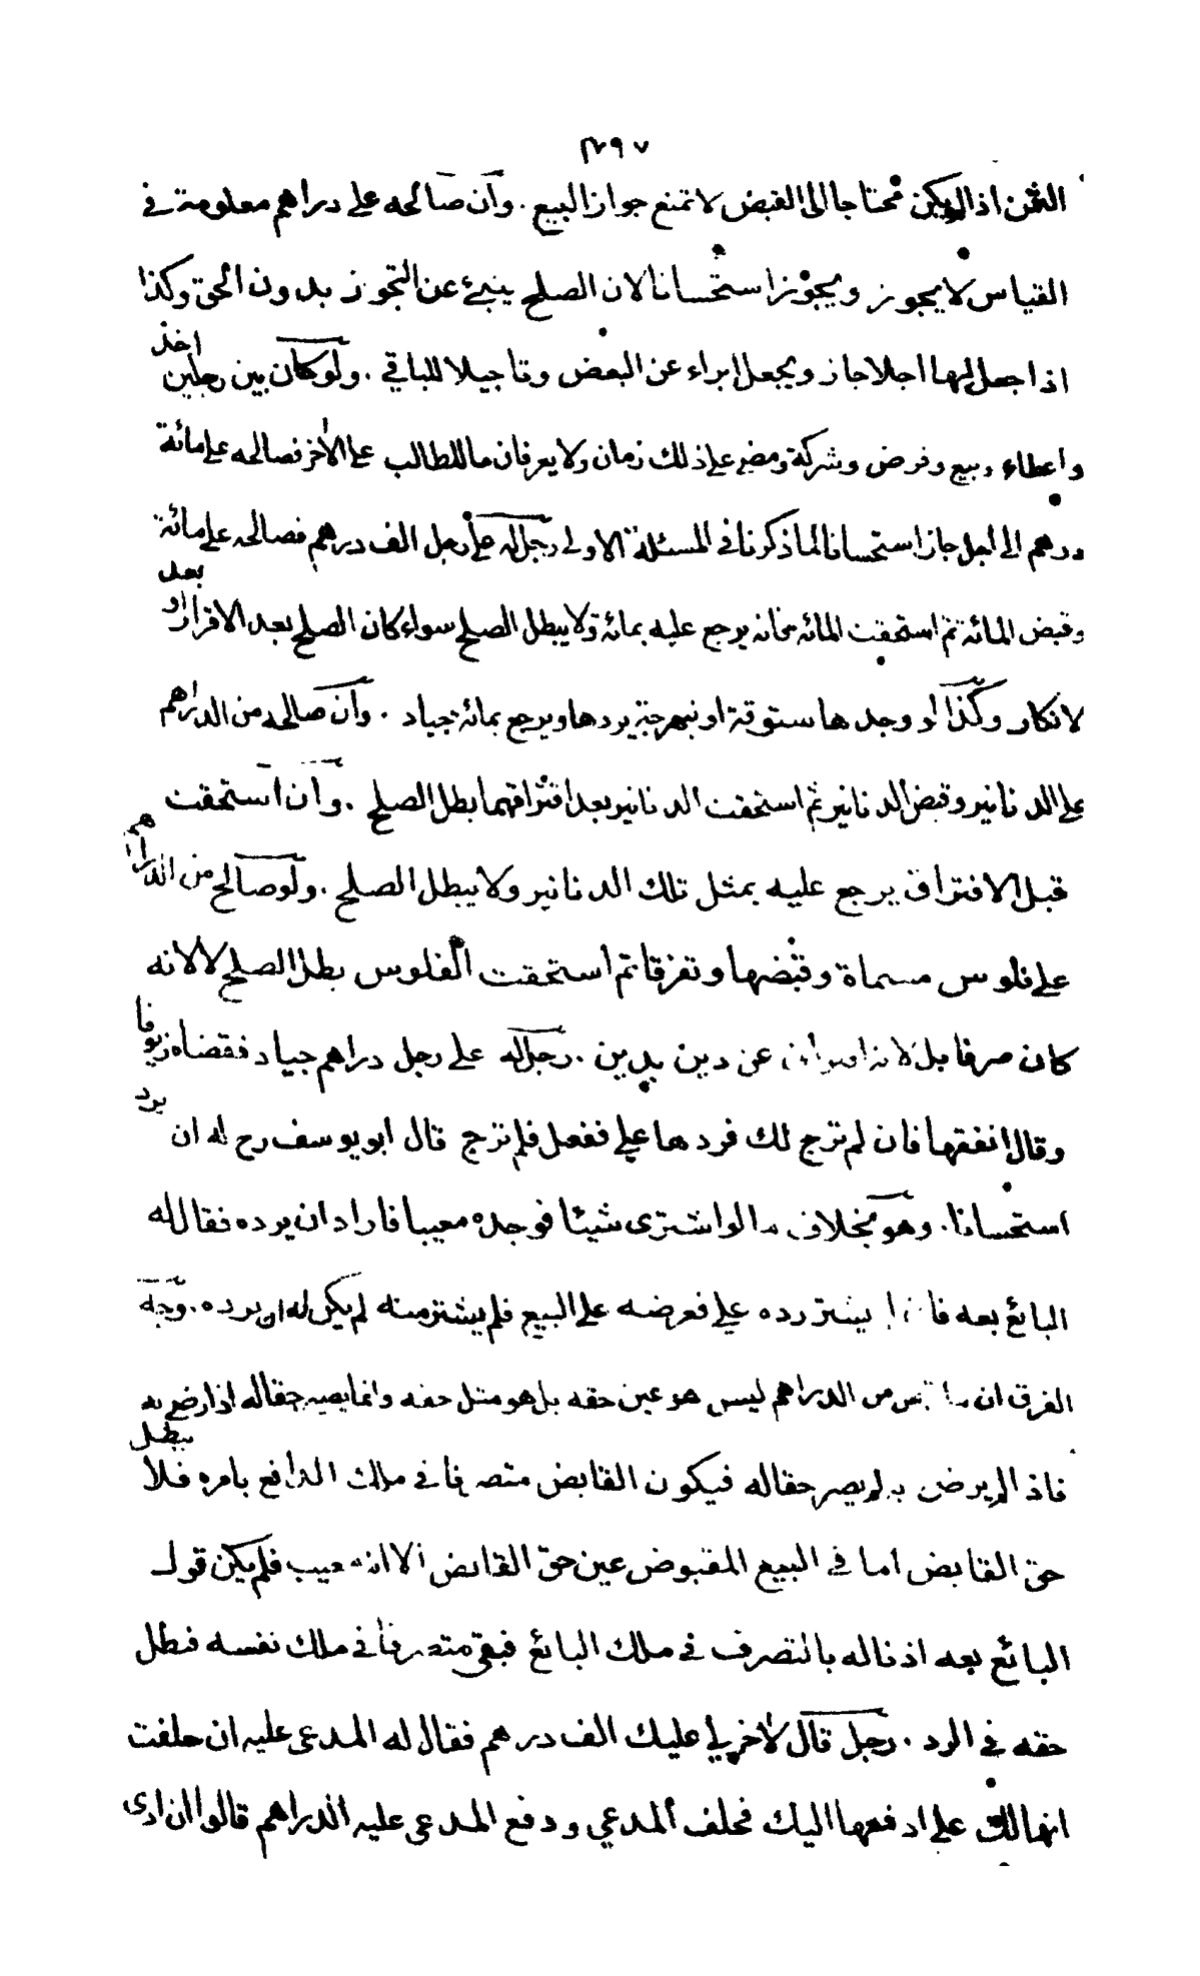 ٣٩٧
الثمن اذا لم يكن محتاجا الى القبض لا تمنع جواز البيع . وان صالحه على دراهم معلومة في
القياس لا يجوز ويجوز استحسانا لان الصلح ينبئ عن التجوز بدون الحق وكذا
اذا جعل لها اجلا جاز ويجعل ابراء عن البعض وتاجيلا للباقي . ولو كان بين رجلين اخذ
واعطاء وبيع وقرض وشركة ومضى على ذلك زمان ولا يعرفان ما للطالب على الآخر فصالحه على مائة
درهم الى اجل جاز استحسانا لما ذكرنا في المسئلة الاولى رجل له على رجل الف درهم فصالحه على مائة
وقبض المائة ثم استحقت المائة فانه يرجع عليه بمائة ولا يبطل الصلح سواء كان الصلح بعد الاقرار او بعد
لانكار وكذا لو وجدها ستوقة او نبهرجة يردها ويرجع بمائة جياد . وان صالحه من الدراهم
على الدنانير وقبض الدنانير ثم استحقت الدنانير بعد افتراقهما بطل الصلح . وان استحقت
قبل الافتراق يرجع عليه بمثل تلك الدنانير ولا يبطل الصلح . ولو صالح من الدراهم
على فلوس مسماة وقبضها وتفرقا ثم استحقت الفلوس بطل الصلح لا لانه
كان صرفا بل لانه افتراق عن دين بدين . رجل له على رجل دراهم جياد فقضاه زيوفا
وقال انفقها فان لم ترج لك فردها علي ففعل فلم ترج قال ابو يوسف رح له ان يرد
استحسانا . وهو بخلاف ما لو اشترى شيئا فوجده معيبا فاراد ان يرده فقال له
البائع بعه فان لم يشتر رده علي فعرضه على البيع فلم يشتر منه لم يكن له ان يرده . وجه
الفرق ان ما قبض من الدراهم ليس هو عين حقه بل هو مثل حقه وانما يصير حقا له اذا رضي به
فاذا لم يرض به لم يصر حقا له فيكون القابض متصرفا في ملك الدافع بامره فلا يبطل
حق القابض اما في البيع المقبوض عين حق القابض الا انه معيب فلم يكن قول
البائع بعه اذنا له بالتصرف في ملك البائع فبقي متصرفا في ملك نفسه فبطل
حقه في الرد . رجل قال لآخر لي عليك الف درهم فقال له المدعى عليه ان حلفت
انها لك علي ادفعها اليك فحلف المدعي ودفع المدعى عليه الدراهم قالوا ان ادى